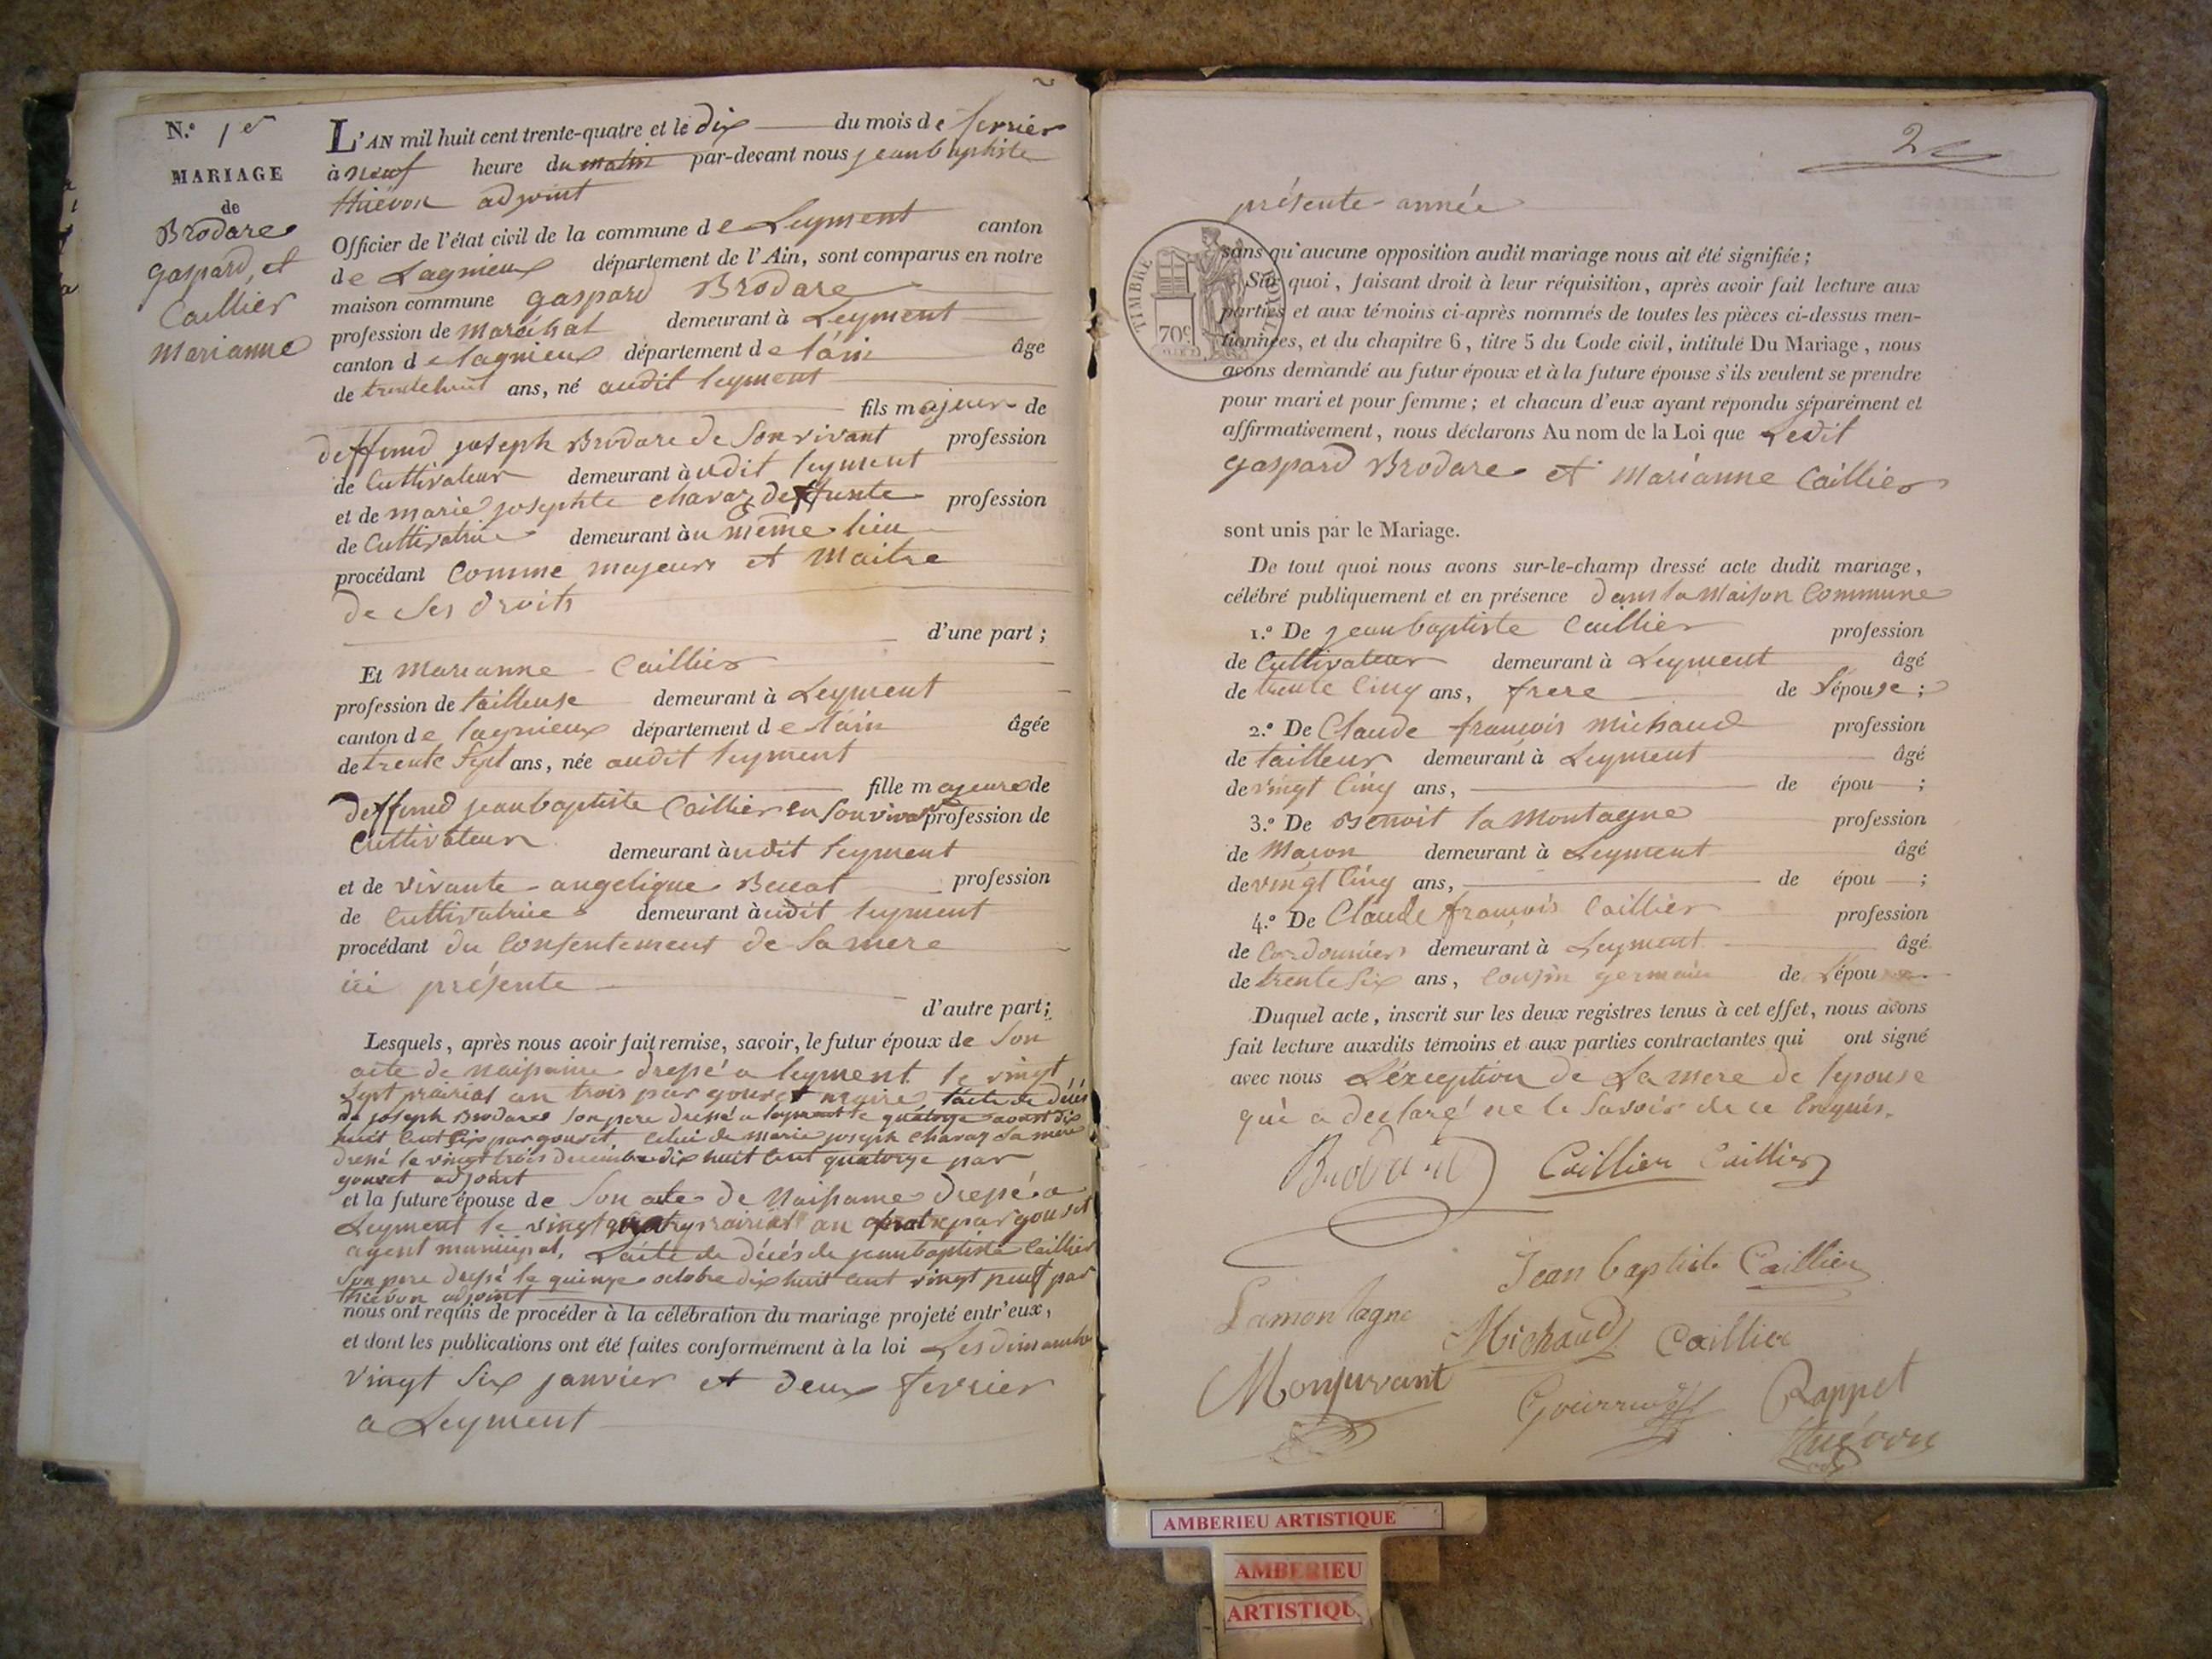 N.º 1er
MARIAGE
de
Brodare
gaspard, et
Caillier
Marianne
L'AN mil huit cent trente-quatre et le dix du mois de fevrier
à neuf heure du matin par-devant nous jean baptiste
thiévon adjoint
Officier de l'état civil de la commune de Leyment canton
de Lagnieux département de l'Ain, sont comparus en notre
maison commune gaspard Brodare
profession de maréchal demeurant à Leyment
canton de lagnieux département de l'ain âgé
de trente huit ans, né audit leyment
fils majeur de
deffund joseph Brodare de Son vivant profession
de Cultivateur demeurant àudit leyment
et de marie josephte charaz deffunte profession
de Cultivatrice demeurant àu même lieu
procédant Comme majeur et Maitre
de Ses droits
d'une part ;
Et Marianne Caillier
profession de tailleuse demeurant à Leyment
canton de lagnieux département de l'ain âgée
de trente Sept ans, née audit leyment
fille majeure de
deffund jean baptiste Caillier en Son vivant profession de
Cultivateur demeurant àudit leyment
et de vivante angelique profession
de Cultivatrice demeurant àudit leyment
procédant du Consentement de Sa mere
ici présente
d'autre part ;
Lesquels, après nous avoir fait remise, savoir, le futur époux de Son
acte de naissance dressé a leyment le vingt
Sept prairial an trois par gouvet maire l'acte de décés
de joseph Brodare Son pere dressé a leyment le quatorze aoust dix
huit Cent Six par gouvet, celui de marie joseph charaz Sa mere
dressé le vingt trois decembre dix huit Cent quatorze par
gouvet adjoint
et la future épouse de Son acte de Naissance dressé a
Leyment le vingt prairial an par gouvet
agent municipal, L'acte de décés de jean baptiste Caillier
Son pere dressé le quinze octobre dix huit Cent vingt neuf par
thiévon adjoint
nous ont requis de procéder à la célébration du mariage projeté entr'eux,
et dont les publications ont été faites conformément à la loi Les dimanche
vingt Six janvier et deux fevrier
a Leyment
2
présente année
TIMBRE ROYAL
70c
sans qu'aucune opposition audit mariage nous ait été signifiée ;
Sur quoi, faisant droit à leur réquisition, après avoir fait lecture aux
parties et aux témoins ci-après nommés de toutes les pièces ci-dessus men-
tionnées, et du chapitre 6, titre 5 du Code civil, intitulé Du Mariage, nous
avons demandé au futur époux et à la future épouse s'ils veulent se prendre
pour mari et pour femme ; et chacun d'eux ayant répondu séparément et
affirmativement, nous déclarons Au nom de la Loi que Ledit
gaspard Brodare et Marianne Caillier
sont unis par le Mariage.
De tout quoi nous avons sur-le-champ dressé acte dudit mariage,
célébré publiquement et en présence dans la Maison Commune
1.º De jean baptiste Caillier profession
de Cultivateur demeurant à Leyment âgé
de trente Cinq ans, frere de L'épouse ;
2.º De Claude françois Michaud profession
de tailleur demeurant à Leyment âgé
de vingt Cinq ans, de épou ;
3.º De Benoit la Montagne profession
de Maçon demeurant à Leyment âgé
de vingt Cinq ans, de épou ;
4.º De Claude françois Caillier profession
de Cordonnier demeurant à Leyment âgé
de trente Six ans, Cousin germain de L'épouse.
Duquel acte, inscrit sur les deux registres tenus à cet effet, nous avons
fait lecture auxdits témoins et aux parties contractantes qui ont signé
avec nous L'éxception de La mere de lepouse
qui a declaré ne le Savoir de ce Enquis.
Caillier Caillier
Jean baptiste Caillier
Lamontagne
Michaud Caillier
Monjuvant
Rappet
thiévon
AMBERIEU ARTISTIQUE
AMBERIEU
ARTISTIQU